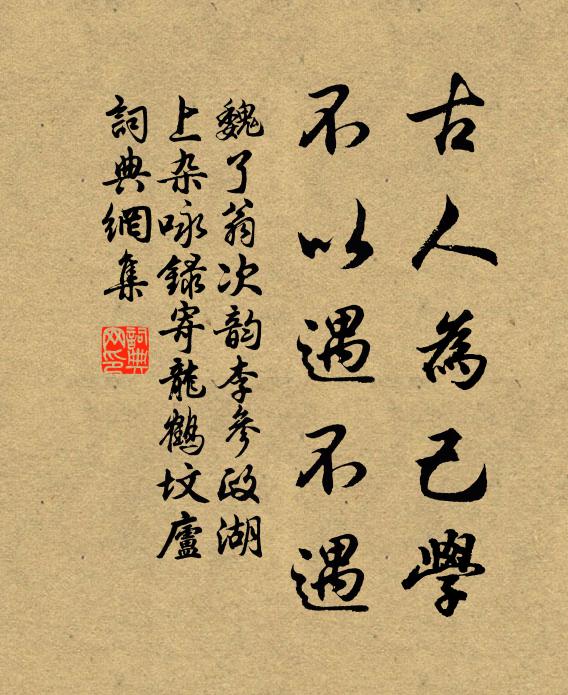 古人為己學
不以遇不遇
魏了翁次韵李參政湖
上杂咏録寄龍鶴坟廬
詞典網集
詞典
网印